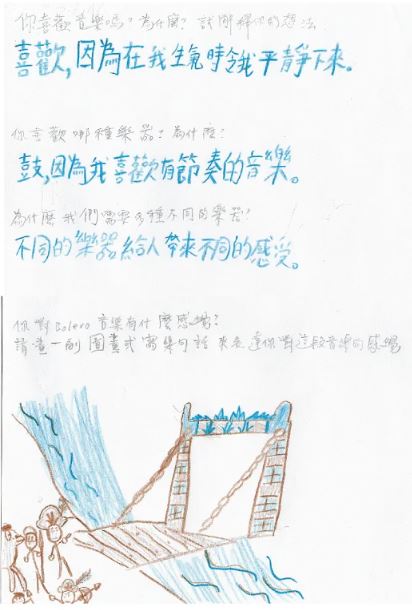 你喜歡音樂嗎？為什麼？試解釋你的想法
喜歡,因為在我生氣時令我平靜下來。
你喜歡哪種樂器？為什麼？
鼓,因為我喜歡有節奏的音樂。
為什麼我們需要多種不同的樂器？
不同的樂器給人帶來不同的感受。
你對Bolero音樂有什麼感想？
請畫一副圖畫或寫幾句話來表達你對這段音樂的感想